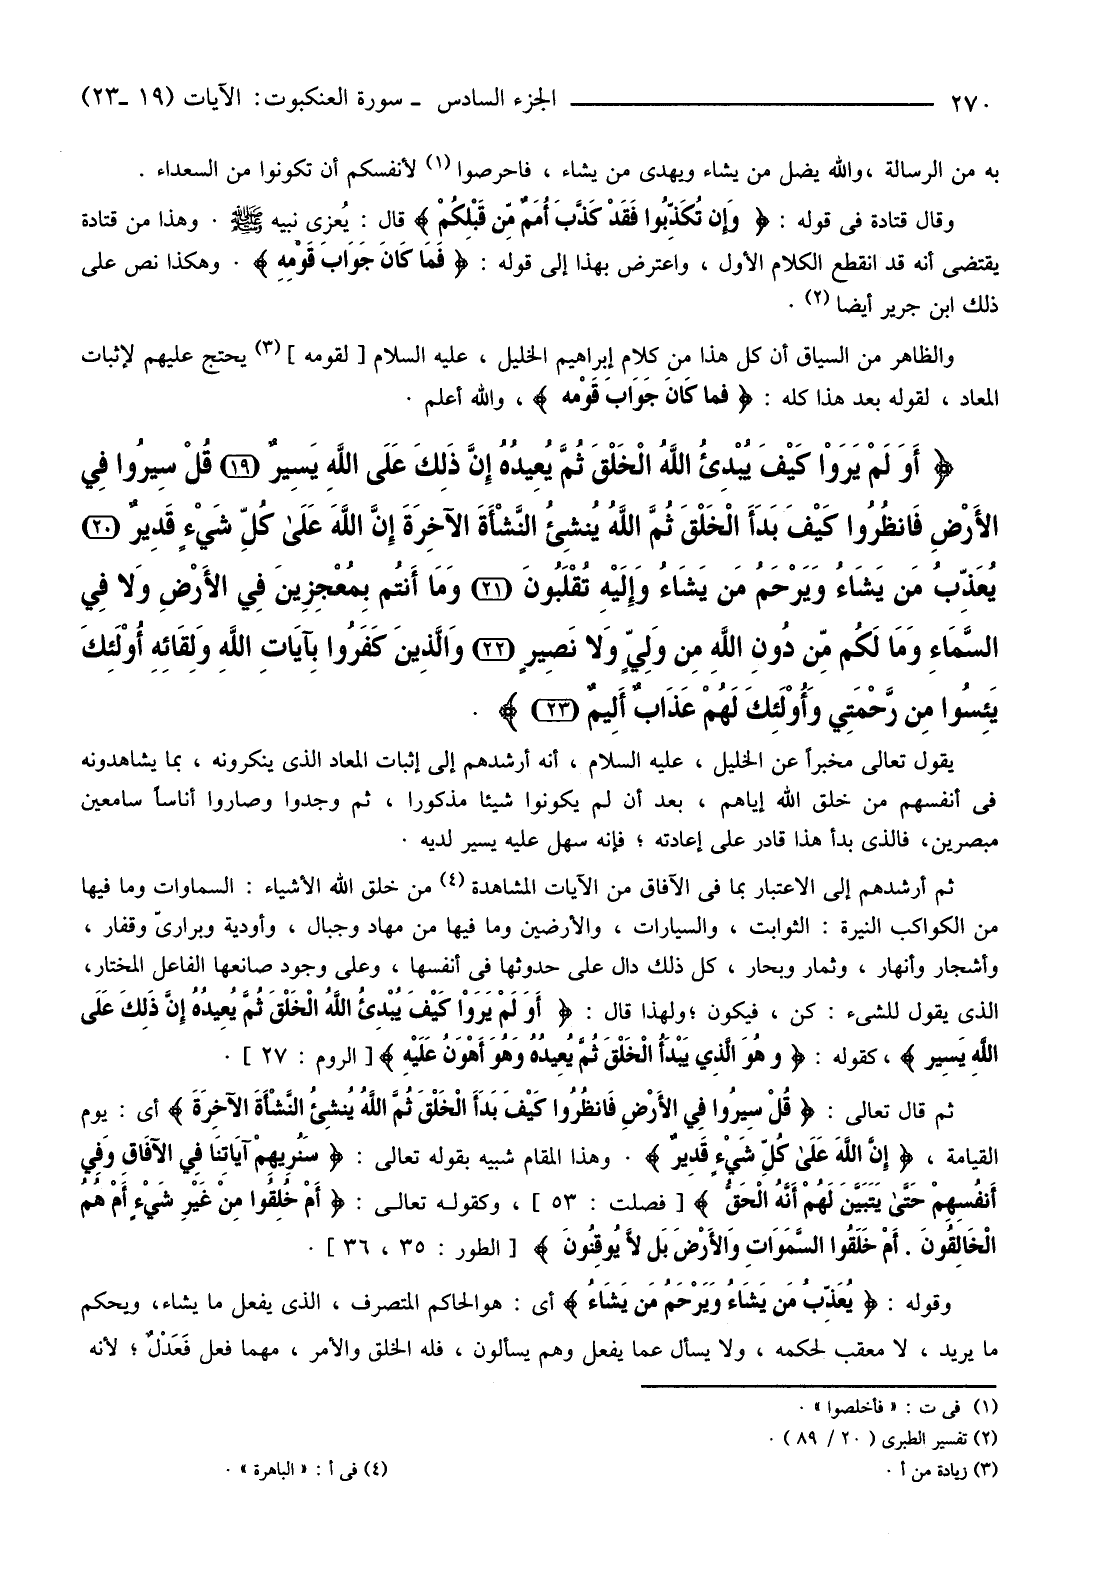 ٢٧٠ ـــــــــــــــــــ الجزء السادس ـ سورة العنكبوت: الآيات (١٩ ـ٢٣)
به من الرسالة ،والله يضل من يشاء ويهدى من يشاء ، فاحرصوا (١) لأنفسكم أن تكونوا من السعداء .
وقال قتادة فى قوله : ﴿ وَإِن تُكَذِّبُوا فَقَدْ كَذَّبَ أُمَمٌ مِّن قَبْلِكُمْ ﴾ قال : يُعزى نبيه ﷺ . وهذا من قتادة
يقتضى أنه قد انقطع الكلام الأول ، واعترض بهذا إلى قوله : ﴿ فَمَا كَانَ جَوَابَ قَوْمِهِ ﴾ . وهكذا نص على
ذلك ابن جرير أيضا (٢) .
والظاهر من السياق أن كل هذا من كلام إبراهيم الخليل ، عليه السلام [ لقومه ] (٣) يحتج عليهم لإثبات
المعاد ، لقوله بعد هذا كله : ﴿ فما كَانَ جَوَابَ قَوْمِه ﴾ ، والله أعلم .
﴿ أَوَ لَمْ يَرَوْا كَيْفَ يُبْدِئُ اللَّهُ الْخَلْقَ ثُمَّ يُعِيدُهُ إِنَّ ذَلِكَ عَلَى اللَّهِ يَسِيرٌ (١٩) قُلْ سِيرُوا فِي
الأَرْضِ فَانظُرُوا كَيْفَ بَدَأَ الْخَلْقَ ثُمَّ اللَّهُ يُنشِئُ النَّشْأَةَ الآخِرَةَ إِنَّ اللَّهَ عَلَىٰ كُلِّ شَيْءٍ قَدِيرٌ (٢٠)
يُعَذِّبُ مَن يَشَاءُ وَيَرْحَمُ مَن يَشَاءُ وَإِلَيْهِ تُقْلَبُونَ (٢١) وَمَا أَنتُم بِمُعْجِزِينَ فِي الأَرْضِ وَلا فِي
السَّمَاءِ وَمَا لَكُم مِّن دُونِ اللَّهِ مِن وَلِيٍّ وَلا نَصِيرٍ (٢٢) وَالَّذِينَ كَفَرُوا بِآيَاتِ اللَّهِ وَلِقَائِهِ أُوْلَئِكَ
يَئِسُوا مِن رَّحْمَتِي وَأُوْلَئِكَ لَهُمْ عَذَابٌ أَلِيمٌ (٢٣) ﴾ .
يقول تعالى مخبراً عن الخليل ، عليه السلام ، أنه أرشدهم إلى إثبات المعاد الذى ينكرونه ، بما يشاهدونه
فى أنفسهم من خلق الله إياهم ، بعد أن لم يكونوا شيئا مذكورا ، ثم وجدوا وصاروا أناساً سامعين
مبصرين، فالذى بدأ هذا قادر على إعادته ؛ فإنه سهل عليه يسير لديه .
ثم أرشدهم إلى الاعتبار بما فى الآفاق من الآيات المشاهدة (٤) من خلق الله الأشياء : السماوات وما فيها
من الكواكب النيرة : الثوابت ، والسيارات ، والأرضين وما فيها من مهاد وجبال ، وأودية وبرارىّ وقفار ،
وأشجار وأنهار ، وثمار وبحار ، كل ذلك دال على حدوثها فى أنفسها ، وعلى وجود صانعها الفاعل المختار،
الذى يقول للشىء : كن ، فيكون ؛ولهذا قال : ﴿ أَوَ لَمْ يَرَوْا كَيْفَ يُبْدِئُ اللَّهُ الْخَلْقَ ثُمَّ يُعِيدُهُ إِنَّ ذَلِكَ عَلَى
اللَّهِ يَسِير ﴾ ، كقوله : ﴿ و هُوَ الَّذِي يَبْدَأُ الْخَلْقَ ثُمَّ يُعِيدُهُ وَهُوَ أَهْوَنُ عَلَيْهِ ﴾ [ الروم : ٢٧ ] .
ثم قال تعالى : ﴿ قُلْ سِيرُوا فِي الأَرْضِ فَانظُرُوا كَيْفَ بَدَأَ الْخَلْقَ ثُمَّ اللَّهُ يُنشِئُ النَّشْأَةَ الآخِرَةَ ﴾ أى : يوم
القيامة ، ﴿ إِنَّ اللَّهَ عَلَىٰ كُلِّ شَيْءٍ قَدِيرٌ ﴾ . وهذا المقام شبيه بقوله تعالى : ﴿ سَنُرِيهِمْ آيَاتِنَا فِي الآفَاقِ وَفِي
أَنفُسِهِمْ حَتَّىٰ يَتَبَيَّنَ لَهُمْ أَنَّهُ الْحَقُّ ﴾ [ فصلت : ٥٣ ] ، وكقولـه تعالـى : ﴿ أَمْ خُلِقُوا مِنْ غَيْرِ شَيْءٍ أَمْ هُمُ
الْخَالِقُونَ . أَمْ خَلَقُوا السَّمَوَاتِ وَالأَرْضَ بَل لاَّ يُوقِنُونَ ﴾ [ الطور : ٣٥ ، ٣٦ ] .
وقوله : ﴿ يُعَذِّبُ مَن يَشَاءُ وَيَرْحَمُ مَن يَشَاءُ ﴾ أى : هوالحاكم المتصرف ، الذى يفعل ما يشاء، ويحكم
ما يريد ، لا معقب لحكمه ، ولا يسأل عما يفعل وهم يسألون ، فله الخلق والأمر ، مهما فعل فَعَدْلٌ ؛ لأنه
(١) فى ت : « فأخلصوا » .
(٢) تفسير الطبرى ( ٢٠ / ٨٩ ) .
(٣) زيادة من أ .
(٤) فى أ : « الباهرة » .